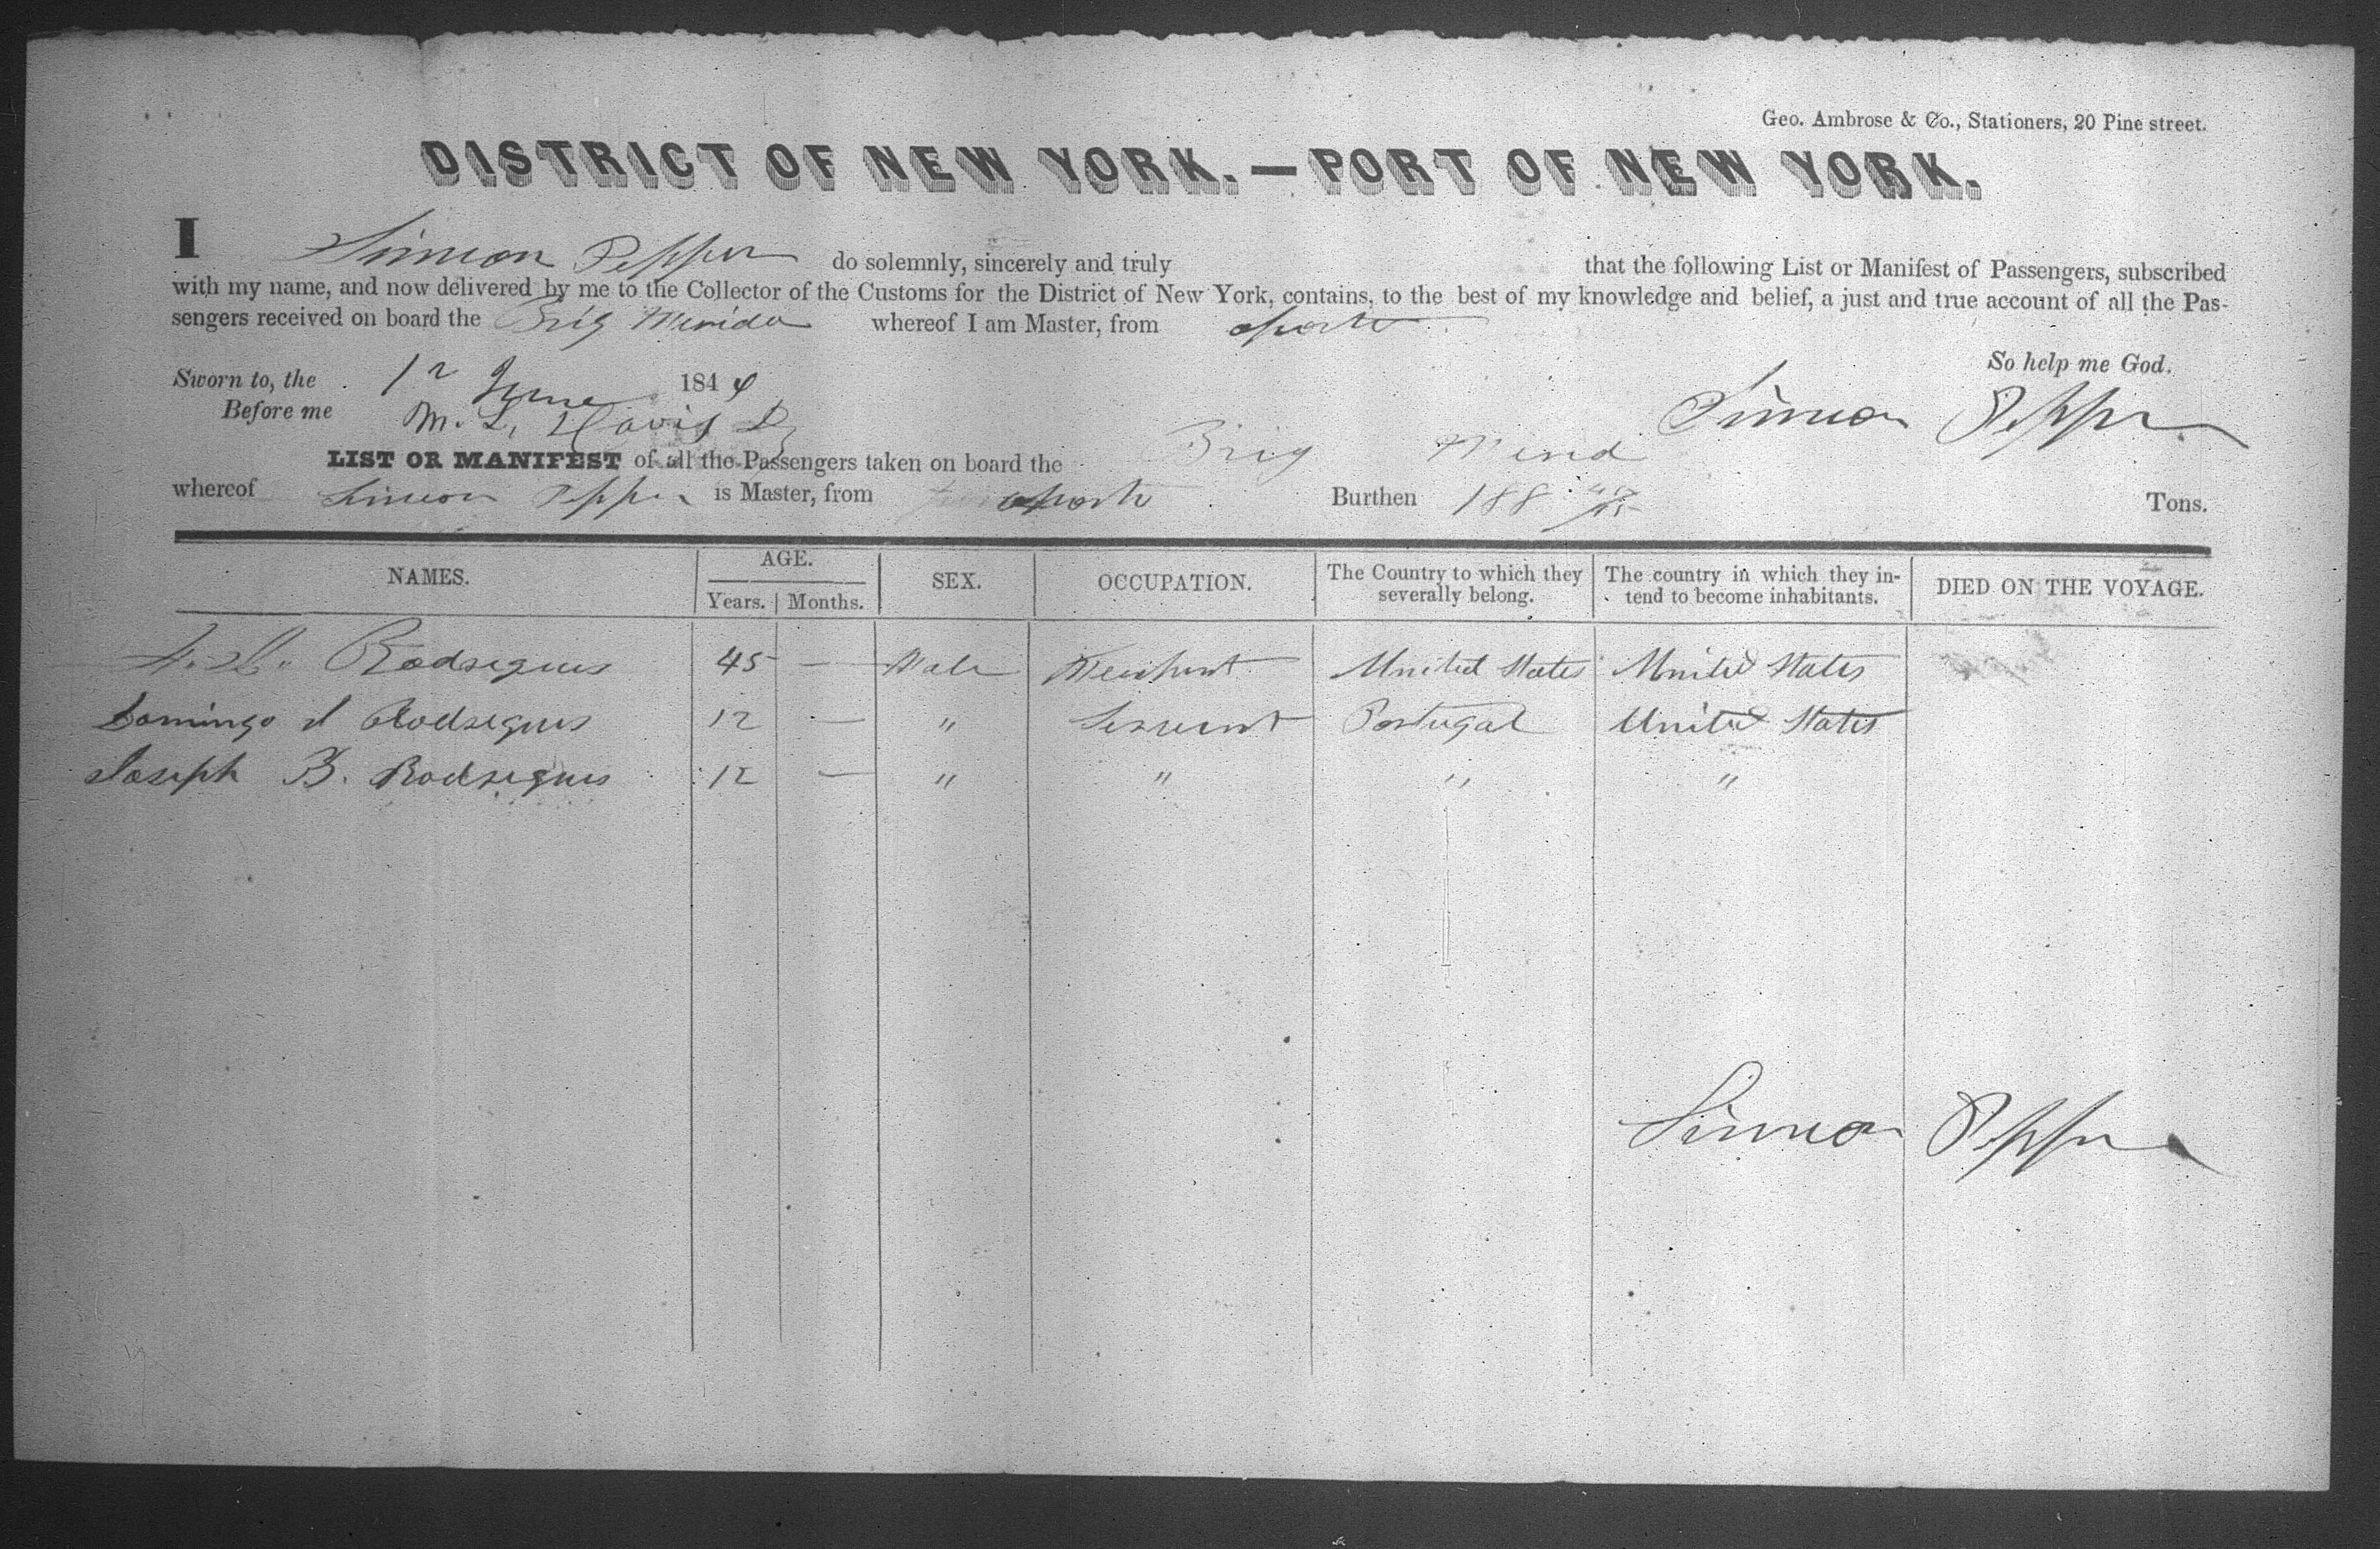 Geo. Ambrose & Co., Stationers, 20 Pine street.
DISTRICT OF NEW YORK.—PORT OF NEW YORK.
I Simeon Pepper do solemnly, sincerely and truly that the following List or Manifest of Passengers, subscribed
with my name, and now delivered by me to the Collector of the Customs for the District of New York, contains, to the best of my knowledge and belief, a just and true account of all the Pas-
sengers received on board the Brig whereof I am Master, from oporto
So help me God.
Sworn to, the June 184 Simeon Pepper
Before me M. L. Davis
LIST OR MANIFEST of all the Passengers taken on board the Brig
whereof Simeon Pepper is Master, from oporto Burthen 188 Tons.
NAMES. AGE. Years. Months. SEX. OCCUPATION. The Country to which they severally belong. The country in which they in-tend to become inhabitants. DIED ON THE VOYAGE.
Rodregues 45 — Male Merchant United States United States
Domingo Rodregues 12 — " Servent Portugal United States
Joseph B. Rodregues 12 — " " " "
Simeon Pepper